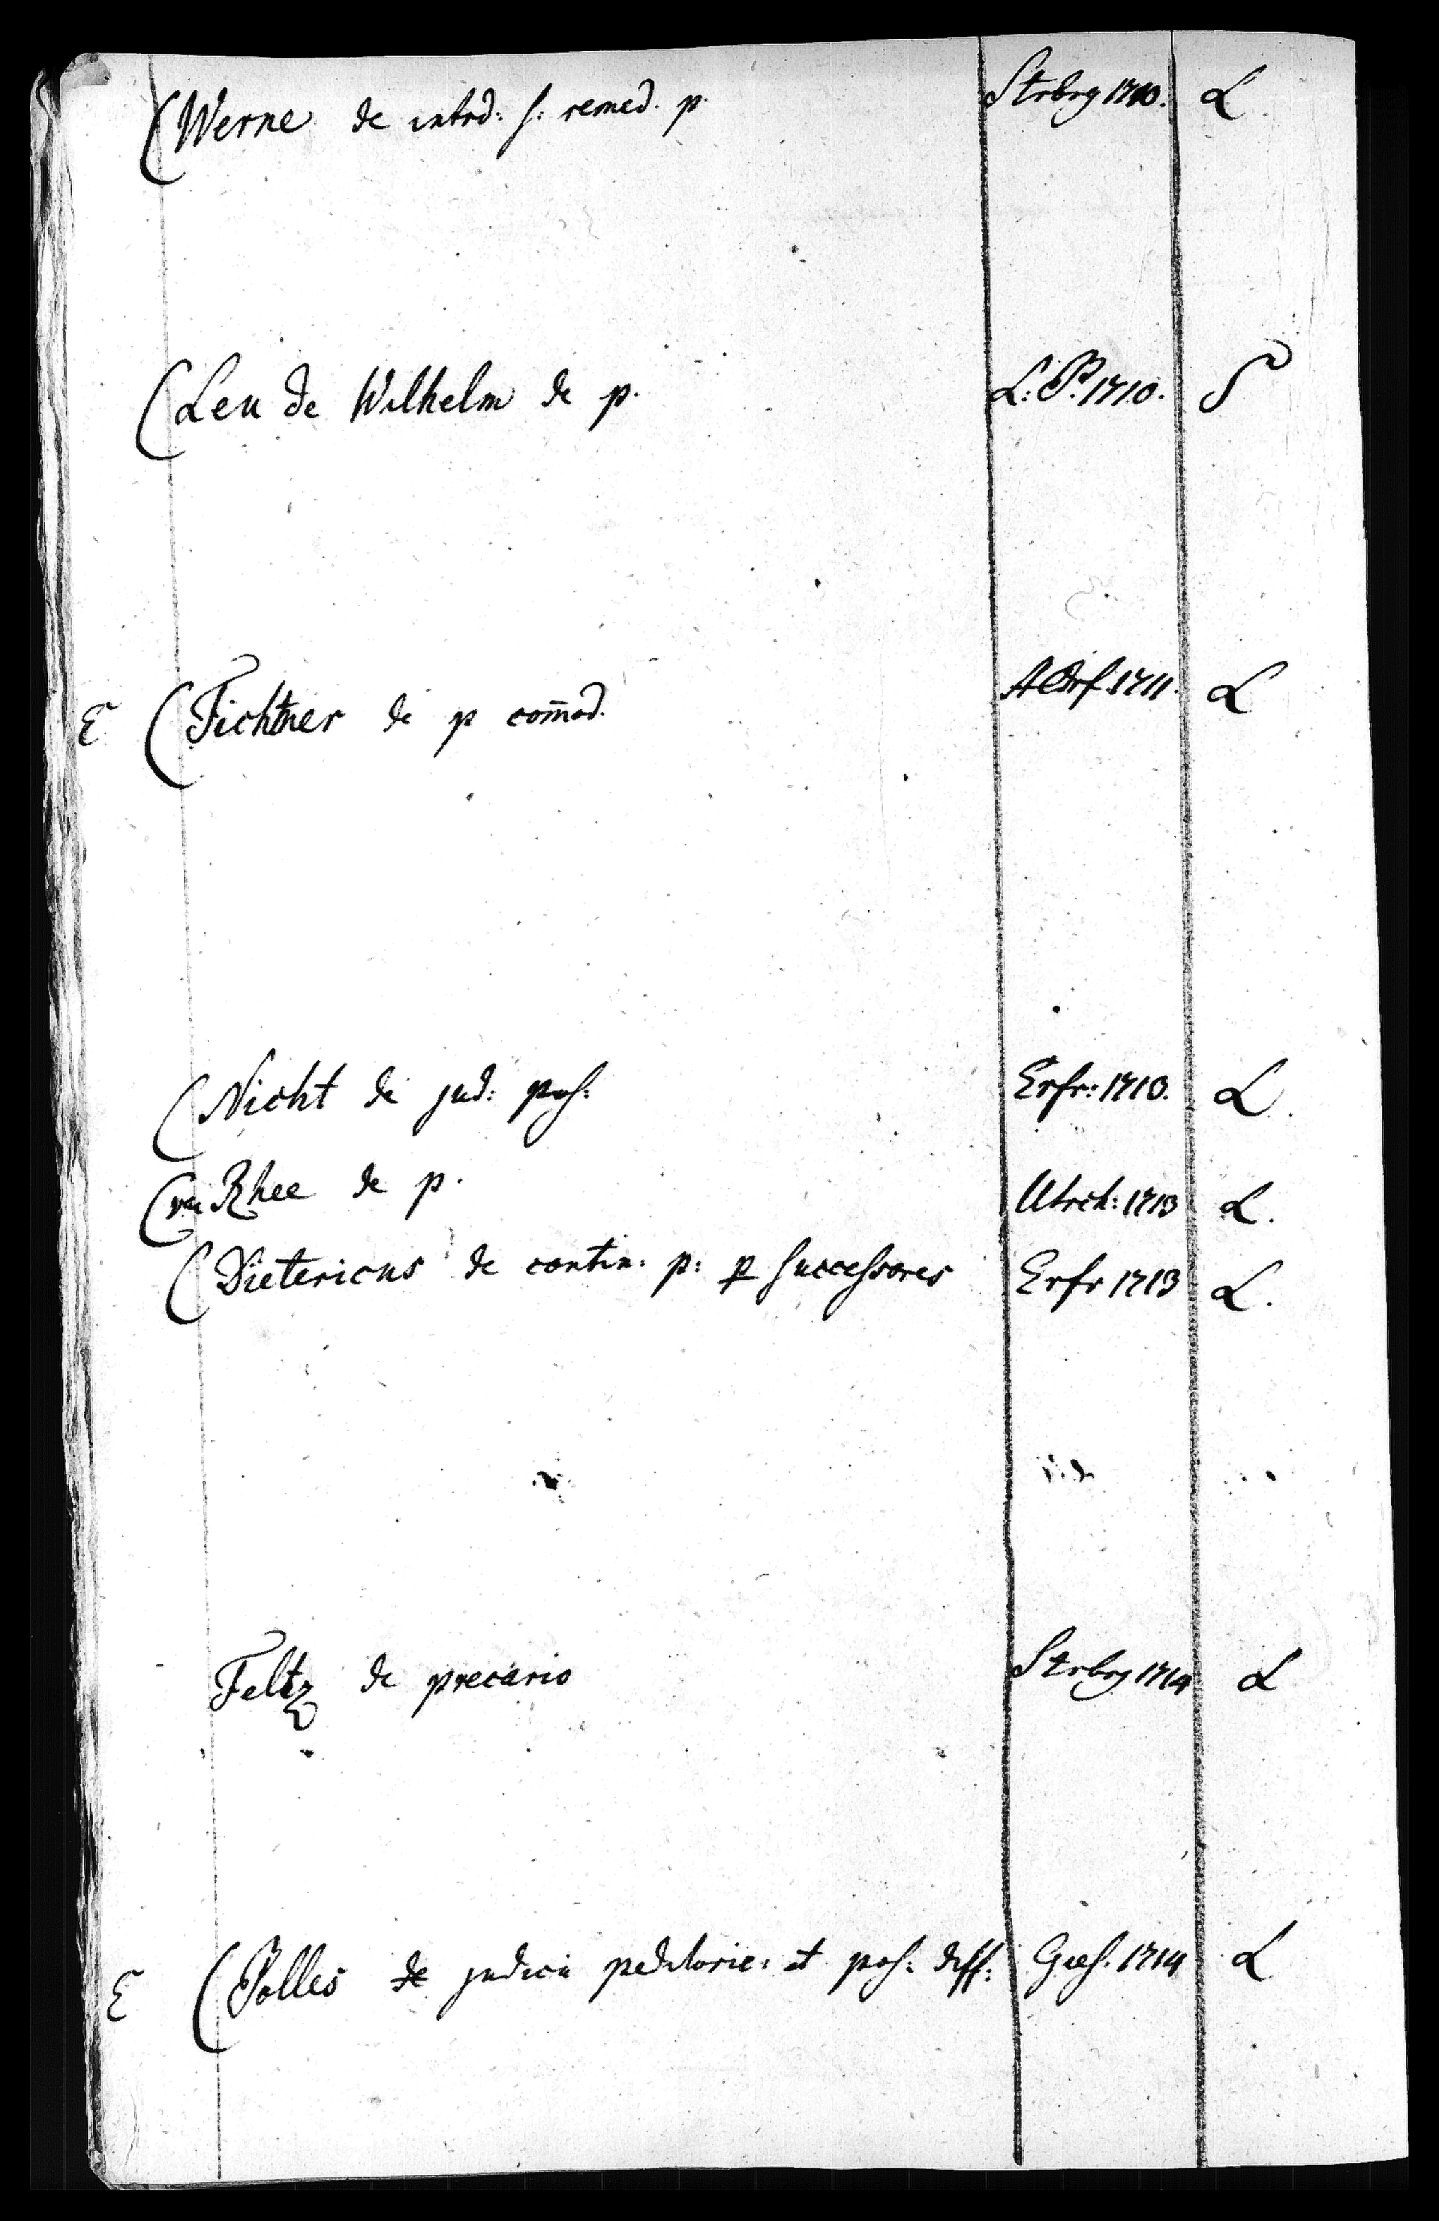 (Werne de intrd: s: remed. p. Strbrg 1710. L.
(Leu de Wilhelm de p. L. B. 1710. S
E (Fichtner de p com̄od. Altdrf. 1711. L
(Nicht de jud: poss: Erfr: 1713. L.
(van Rhee de p. Utrch: 1713 L.
(Dietericus de contin. p: p successores Erfr 1713 L.
Feltz de precario Strbrg 1714 L
E (Polles de judicii petitorie: et poss: diff: Gies. 1714 L